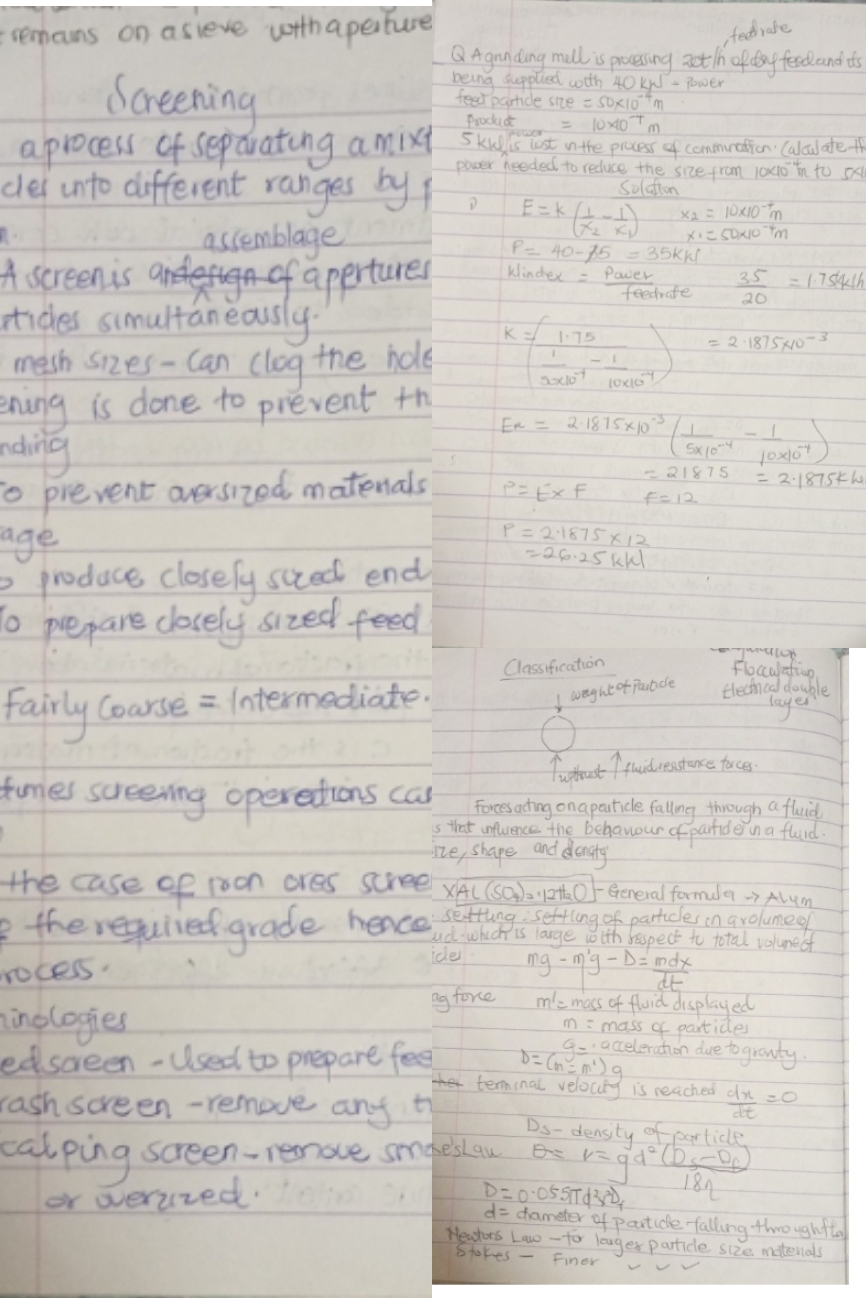 remains on a sieve with aperture
Screening
a process of separating a mixt
cles into different ranges by
assemblage
A screen is an design of apertures
rticles simultaneously.
mesh sizes - Can clog the hole
ening is done to prevent th
nding
To prevent oversized materials
age
o produce closely sized end
To prepare closely sized feed
Fairly Coarse = Intermediate.
times screening operations can
the case of iron ores scree
the required grade hence
rocess.
minologies
ed screen - Used to prepare fee
rash screen - remove any t
calping screen - remove sma
or oversized.
feedrate
Q A grinding mill is processing 20t/h of dry feed and its
being supplied with 40kW - Power
feed particle size = 50x10⁻⁴m
product = 10x10⁻⁴m
5kW power is lost in the process of comminution. Calculate th
power needed to reduce the size from 10x10⁻⁴m to 5x10
Solution
E = K (1/x₂ - 1/x₁) x₂ = 10x10⁻⁴m
x₁ = 50x10⁻⁴m
P = 40 - 5 = 35kW
W index = Power/feedrate 35/20 = 1.75
K = (1.75 / 1/50x10⁻⁴ - 1/10x10⁻⁴) = 2.1875x10⁻³
= 2.1875x10⁻³ (1/5x10⁻⁴ - 1/10x10⁻⁴)
= 21875 = 2.1875kW
P = E x F F = 12
P = 2.1875 x 12
= 26.25kW
Classification
Flocculation
Electrical double
layer
weight of Particle
upthrust fluid resistance forces.
Forces acting on a particle falling through a fluid
s that influence the behaviour of particle in a fluid.
ize, shape and density
XAL(SO₄)₂.12H₂O - General formula → Alum
settling: settling of particles in a volume of
uid which is large with respect to total volume of
icles mg - m'g - D = mdx/dt
ag force m' = mass of fluid displayed
m = mass of particles
g = acceleration due to gravity.
D = (m - m')g
terminal velocity is reached dx/dt = 0
Ds - density of particle
ke's Law v = gd²(Ds - Df)/18η
D = 0.055πd²v²Df
d = diameter of particle falling through
Newtons Law - for larger particle size materials
Stokes - Finer